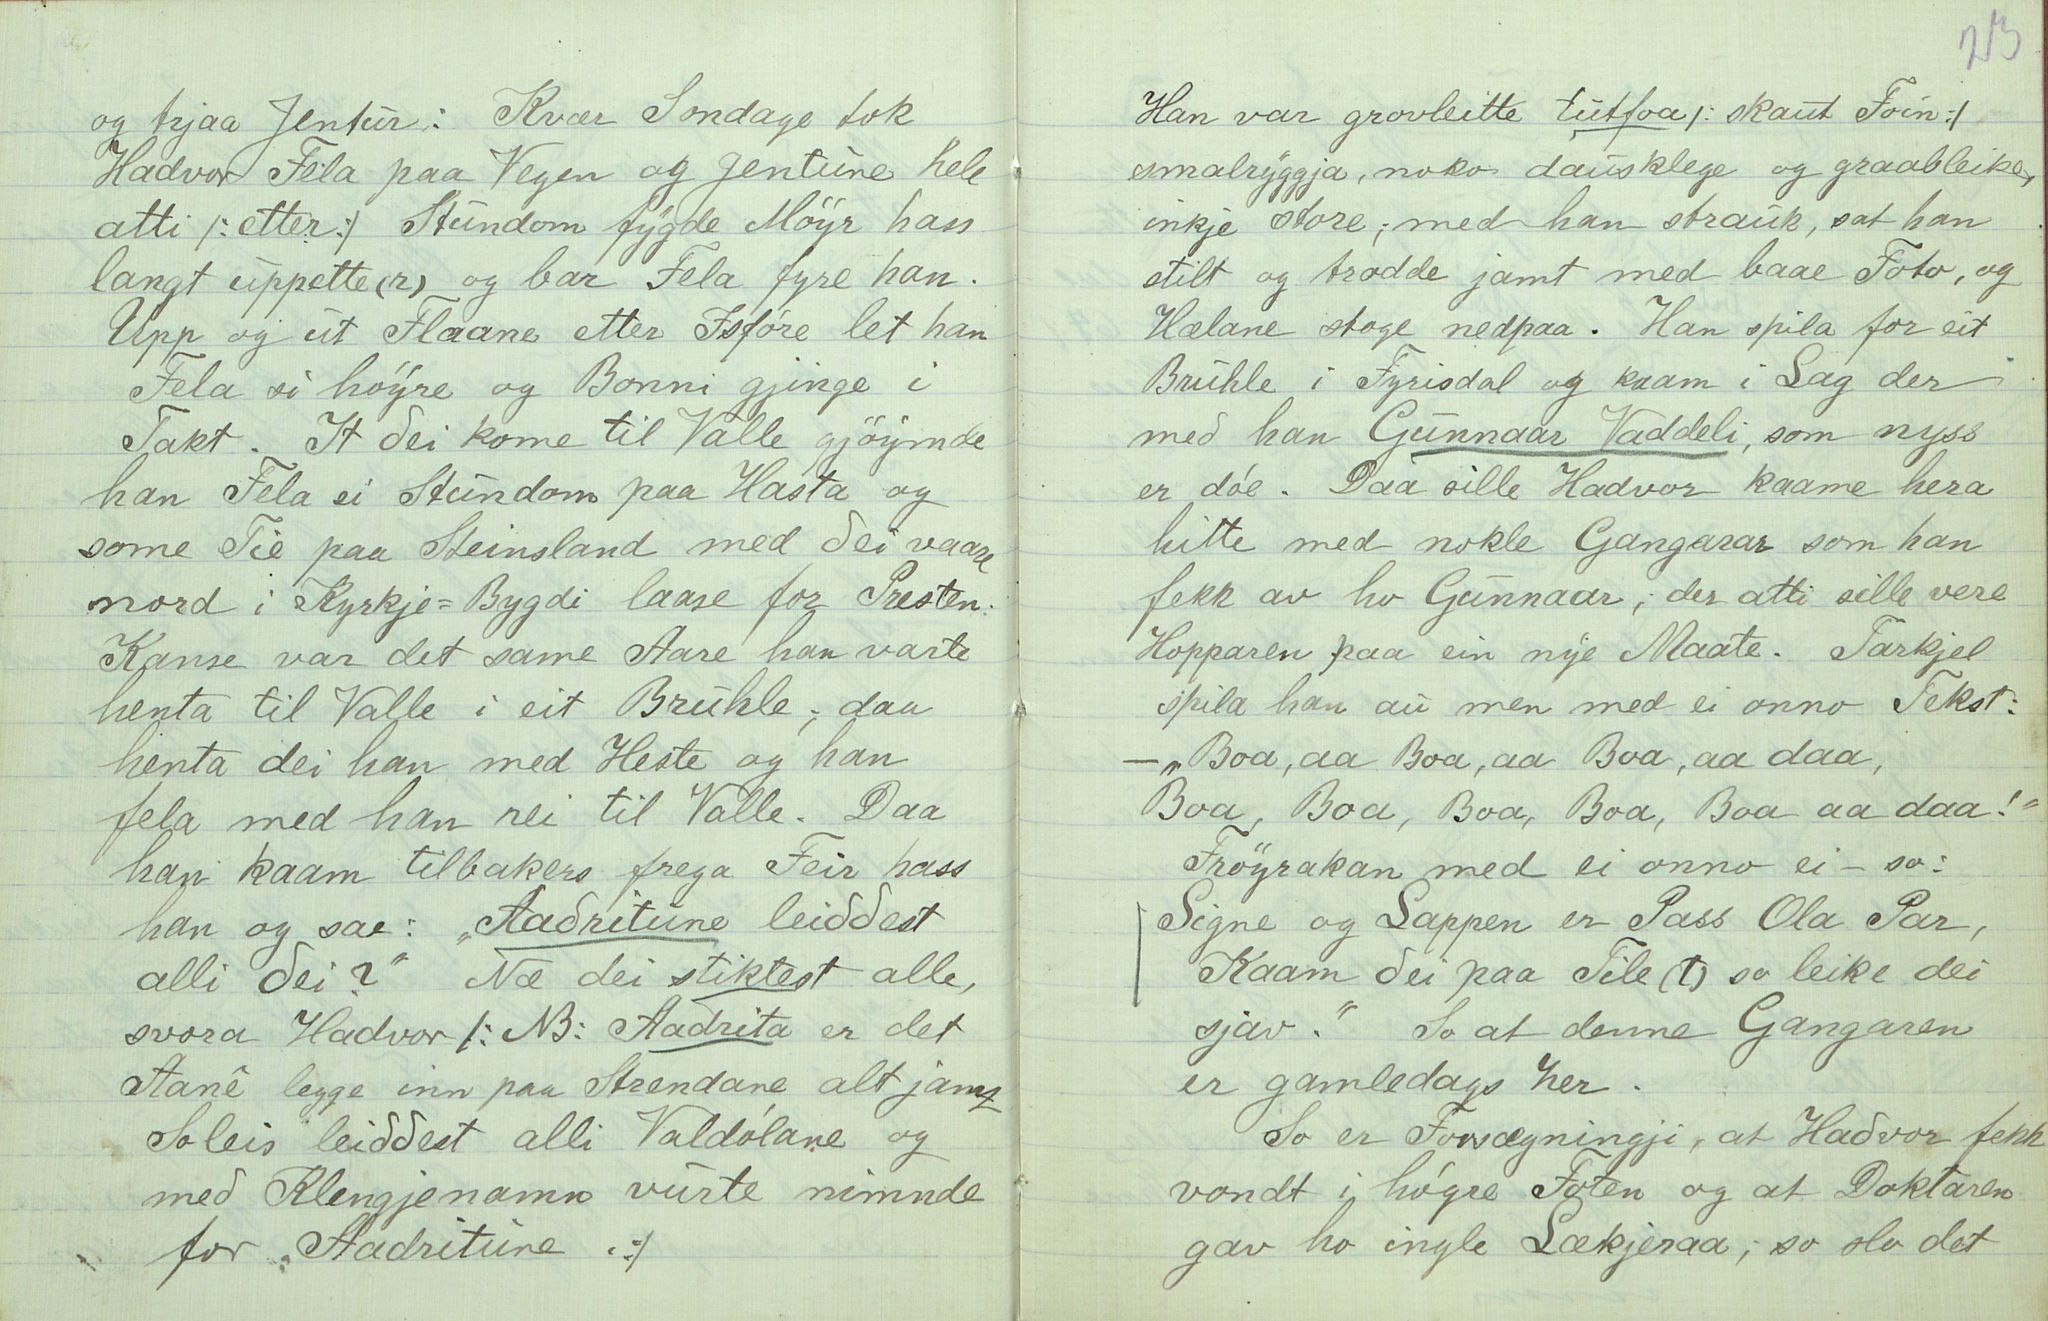 og trjaa Jentur: Kvær Sondage tok
Hadvor Fela paa Vegen og Jentune hele
atti /: etter :/ Stundom fygde Möyr hass
langt uppette(r) og bar Fela fyre han.
Upp og ut Flaane etter Isföre let han
Fela si höyre og Bonni gjinge i
Takt. It dei kome til Valle gjöymde
han Fela si Stundom paa Hasta og
some Tie paa Steinsland med dei vaare
nord i Kyrkje=Bygdi laase for Presten.
Kanse var det same Aare han varte
henta til Valle i eit Bruhle; daa
henta dei han med Heste og han
fela med han rei til Valle. Daa
han kaam tilbakers frega Feir hass
han og sae: „Aaðritune leiððest
alli ðei?" Næ dei stiktest alle,
svora Hadvor /: NB: Aadrita er det
Aanê legge inn paa Strendane alt jamt
Soleis leiððest alli Valdólane og
með Klengjenamn vurte nimnde
for „Aadritune . :/
23
Han var grovleitte tutfoa /: skaut Foin :/
smalryggja, noko dausklege og graableike,
inkje store; med han strauk, sat han
stilt og trodde jamt med baae Foto, og
Hælane stoge nedpaa. Han spila for eit
Bruhle i Fyrisdal og kaam i Lag der
með han Gunnaar Vaddeli, som nyss
er dóe. Daa sille Hadvor kaame hera
hitte med nokle Gangarar som han
fekk av ho Gunnaar; der atti sille vere
Hopparen paa ein nye Maate. Tarkjel
spila han au men med ei onno Tekst:
— „Boa, aa Boa, aa Boa, aa daa,
Boa, Boa, Boa, Boa, Boa aa daa!"
Fröyrakan med ei onno ei – so:
Signe og Lappen er Pass Ola Par,
Kaam ðei paa Tile(t) so leike dei
sjav." So at denne Gangaren
er gamledags her.
So er Forsægningji, at Haðvor fekk
vondt i hógre Foten og at Doktaren
gav ho ingle Lækjeraa; so slo det